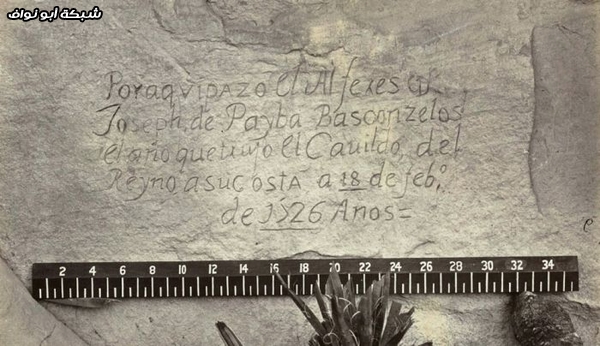 شبكة أبو نواف
Por aqui pazo el Alferes Dn
Joseph, de Payba Basconzelos
el año que trujo el Cauildo, del
Reyno a su costa a 18 de febo
de 1526 Años =
2 4 6 8 10 12 14 16 18 20 22 24 26 28 30 32 34